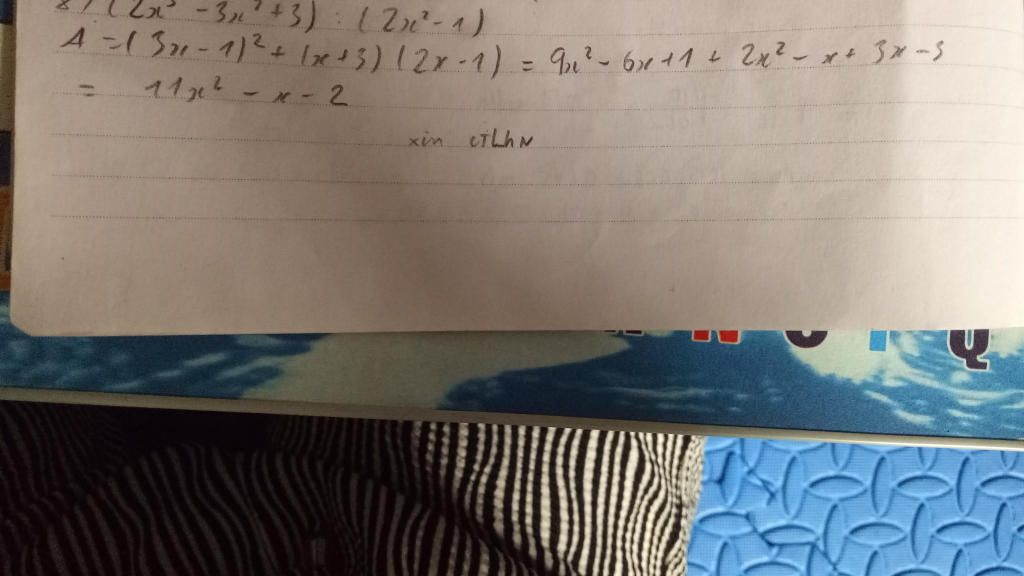 (2x³ - 3x² + 3) : (2x² - 1)
A = (3x - 1)² + (x + 3)(2x - 1) = 9x² - 6x + 1 + 2x² - x + 3x - 3
= 11x² - x - 2
xin cTLhN
N
Q